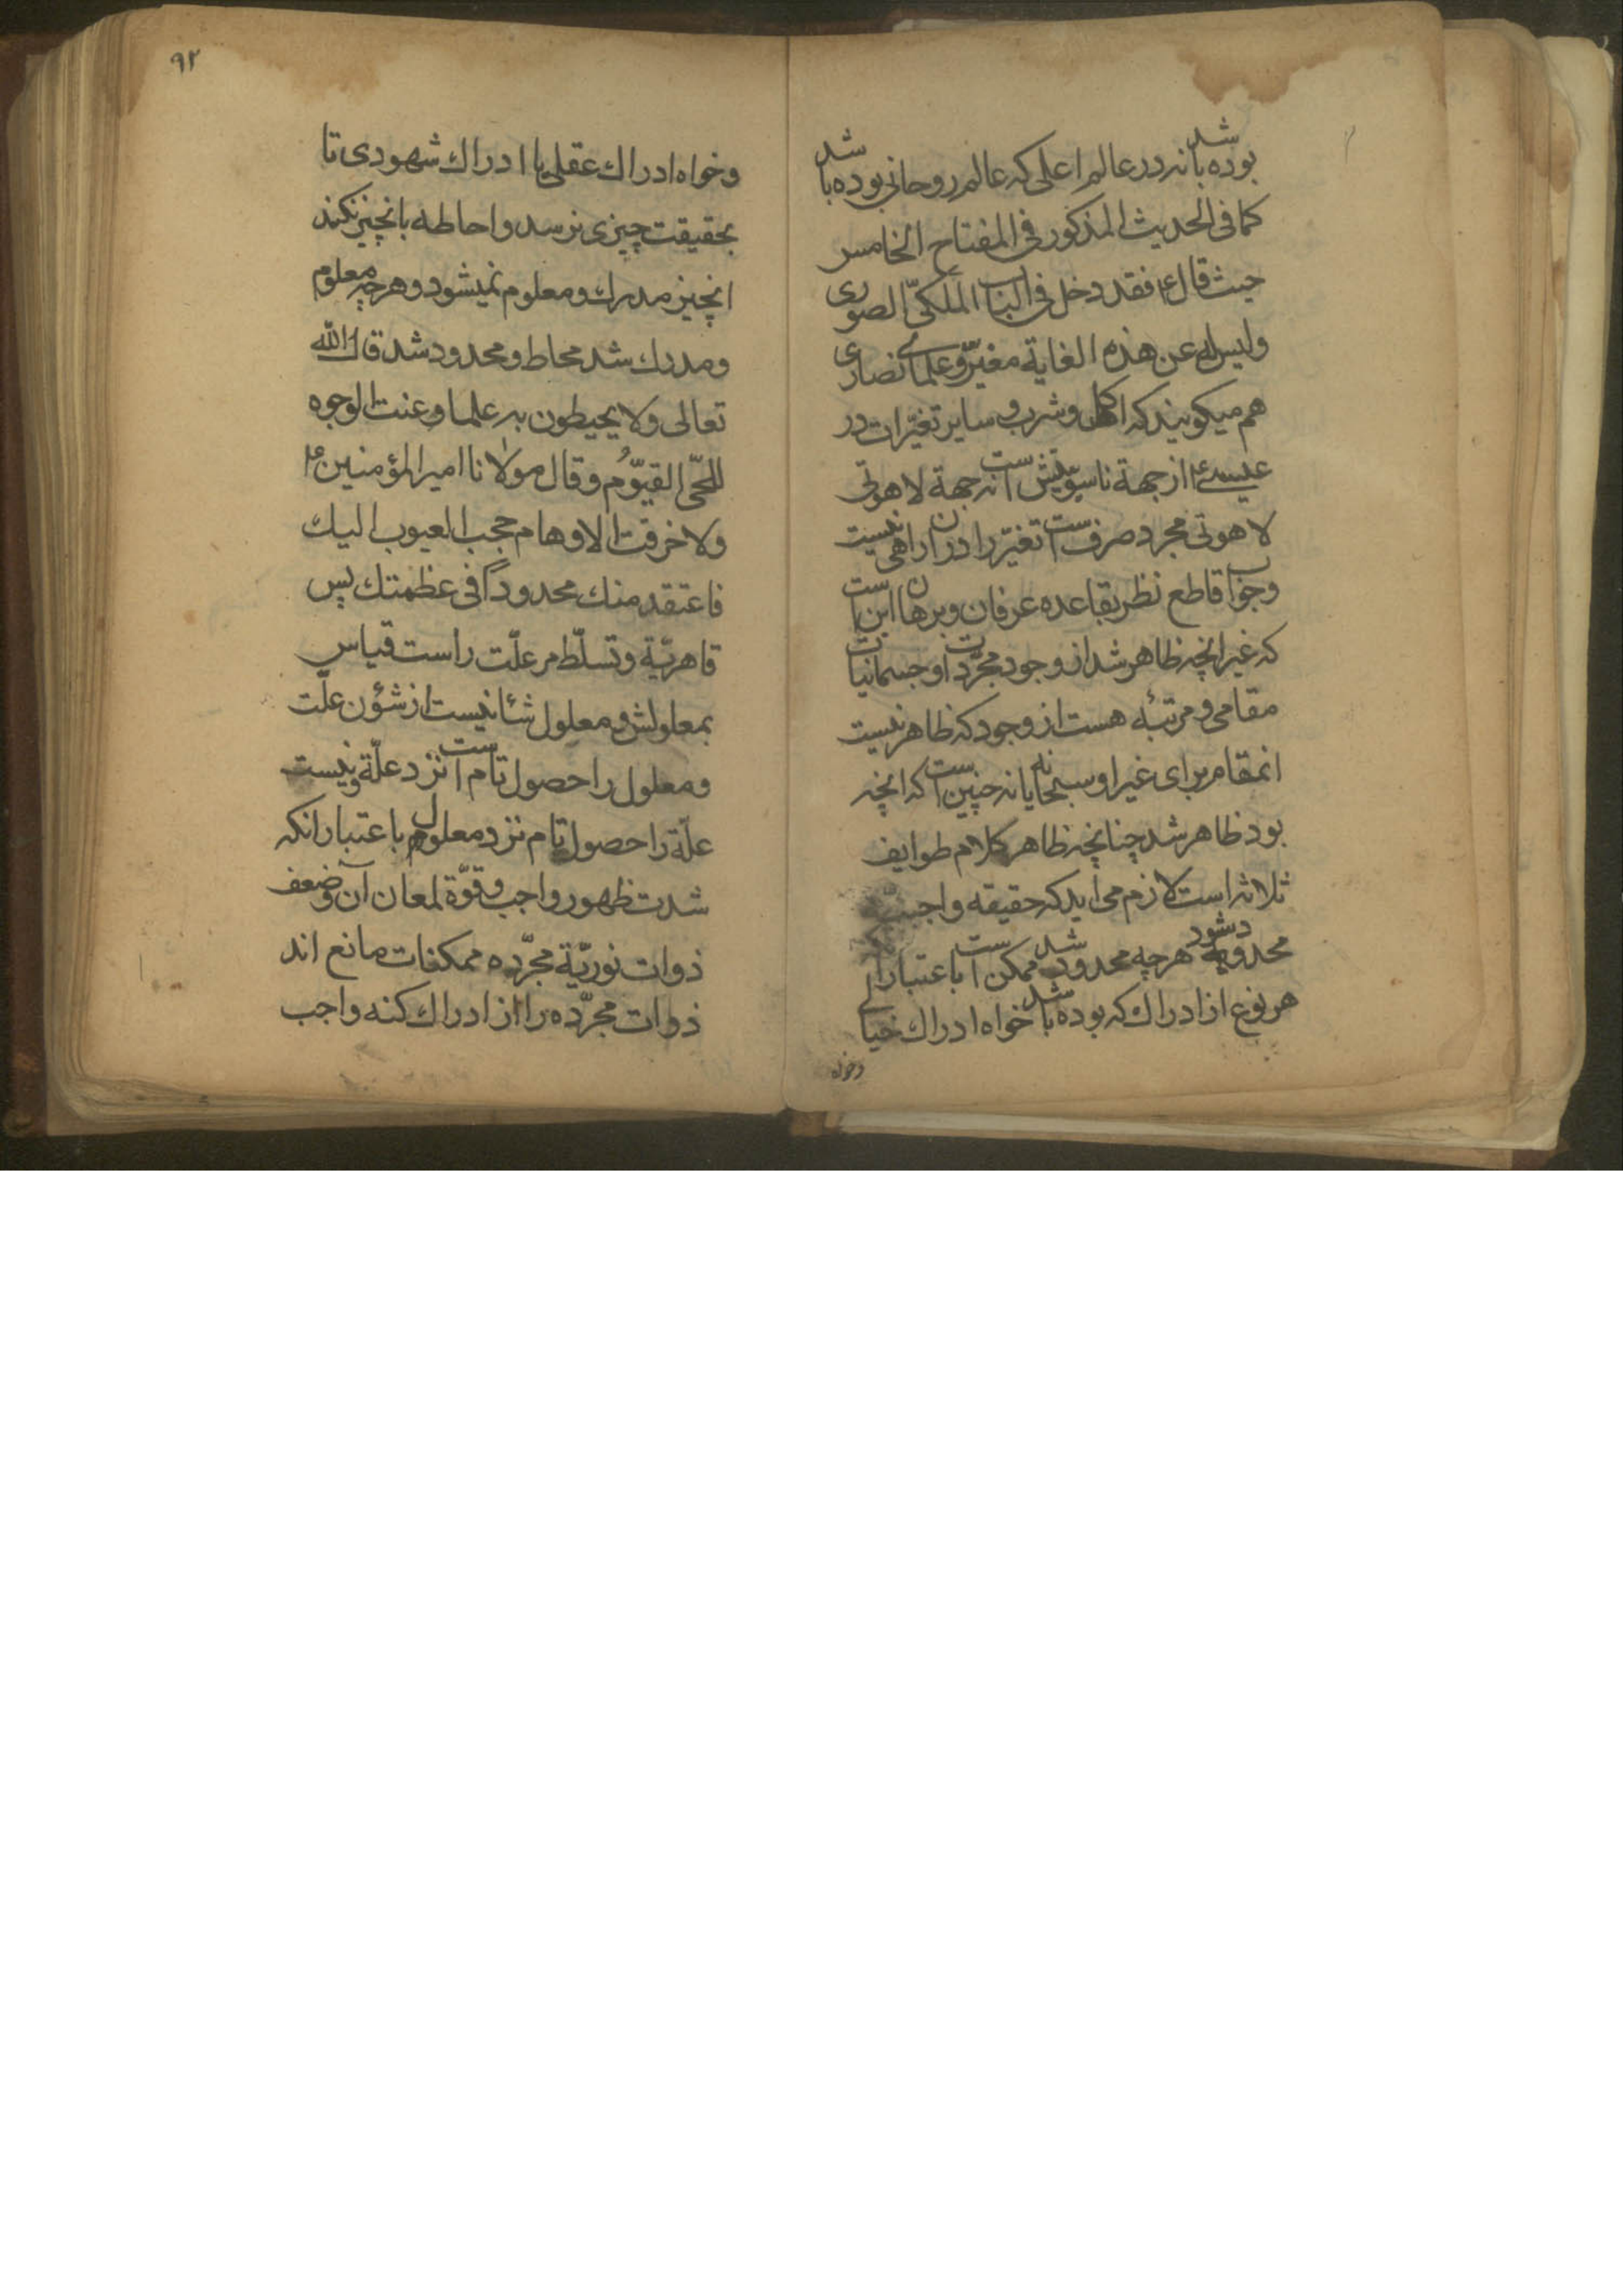 بوده باشد نه در عالم اعلی که عالم روحانی بوده باشد
کما فی الحدیث المذکور فی المفتاح الخامس
حیث قال ع فقد دخل فی الباب الملکیّ الصوری
ولیس له عن هذه الغایة مغیّر و علمای نصاری
هم میکویند که اکل و شرب و سایر تغیّرات در
عیسی ع از جهة ناسوتیّتش است نه جهة لاهوتی
لاهوتی مجرد صرف است تغیّر را در ان راهی نیست
وجواب قاطع نظر بقاعده عرفان و برهان این است
که غیر انچه ظاهر شد از وجود مجرّدات او جسمانیات
مقامی و مرتبهٔ هست از وجود که ظاهر نیست
انمقام برای غیر او سبحانه یا نه چنین است که انچه
بود ظاهر شد چنانچه ظاهر کلام طوایف
ثلاثه است لازم می اید که حقیقه واجب
محدود شود هرچه محدود شد ممکن است باعتبار
هر نوع از ادراک که بوده باشد خواه ادراک خیالی
وخواه
۹۲
وخواه ادراک عقلی یا ادراک شهودی تا
بحقیقت چیزی نرسد و احاطه بانچیز نکند
انچیز مدرک و معلوم نمیشود و هرچه معلوم
ومدرک شد محاط و محدود شد قال الله
تعالی ولا یحیطون به علما وعنت الوجوه
للحیّ القیّوم وقال مولانا امیر المؤمنین ع
ولا خرقت الاوهام حجب الغیوب الیک
فاعتقد منک محدوداً فی عظمتک پس
قاهریّة وتسلّط مر علّت راست قیاس
بمعلولش و معلول شانیست از شؤن علّت
ومعلول را حصول تام است نزد علّة ونیست
علّة را حصول تام نزد معلول باعتبار انکه
شدت ظهور واجب وقوّة لمعان آن وضعف
ذوات نوریّة مجرّده ممکنات مانع اند
ذوات مجرّده را از ادراک کنه واجب